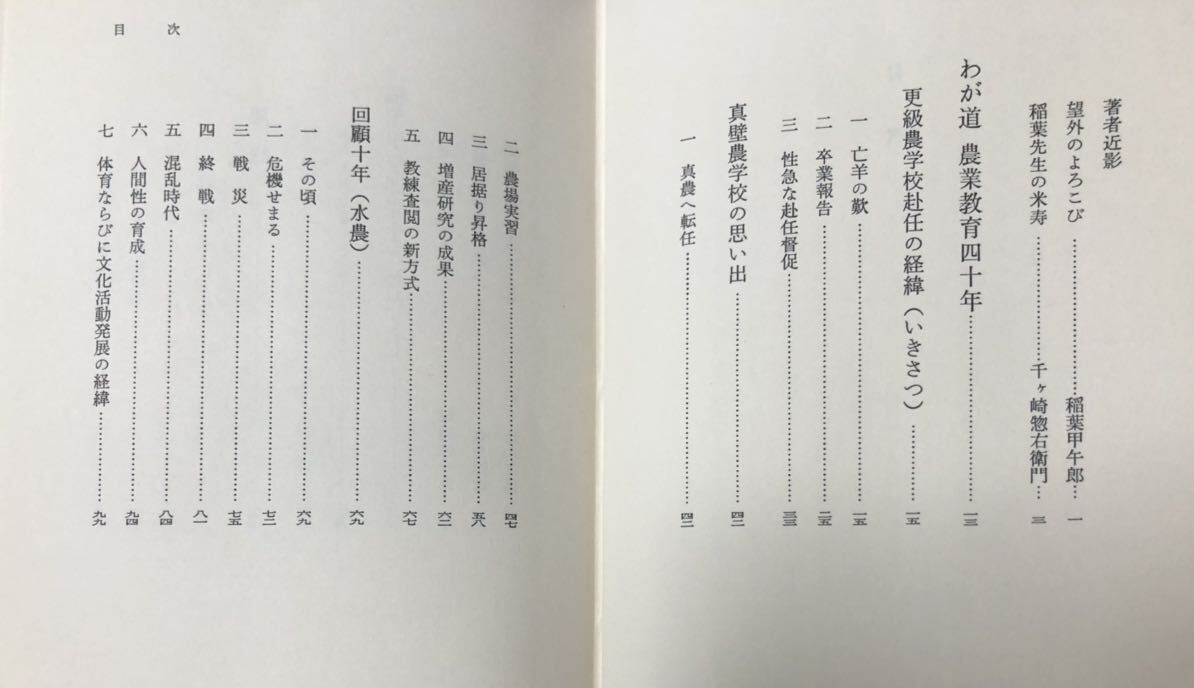 著者近影
望外のよろこび……………………稲葉甲午郎…一
稲葉先生の米寿……………千ヶ崎惣右衛門…三
わが道 農業教育四十年……………………一三
更級農学校赴任の経緯(いきさつ)…………一五
一 亡羊の歎……………………………一五
二 卒業報告……………………………二五
三 性急な赴任督促……………………三三
真壁農学校の思い出……………………四二
一 真農へ転任…………………………四二
目次
二 農場実習……………………………四七
三 居据り昇格…………………………五八
四 増産研究の成果……………………六二
五 教練査閲の新方式…………………六七
回顧十年(水農)………………………六九
一 その頃………………………………六九
二 危機せまる…………………………七二
三 戦災…………………………………七五
四 終戦…………………………………八一
五 混乱時代……………………………八四
六 人間性の育成………………………九四
七 体育ならびに文化活動発展の経緯………九九